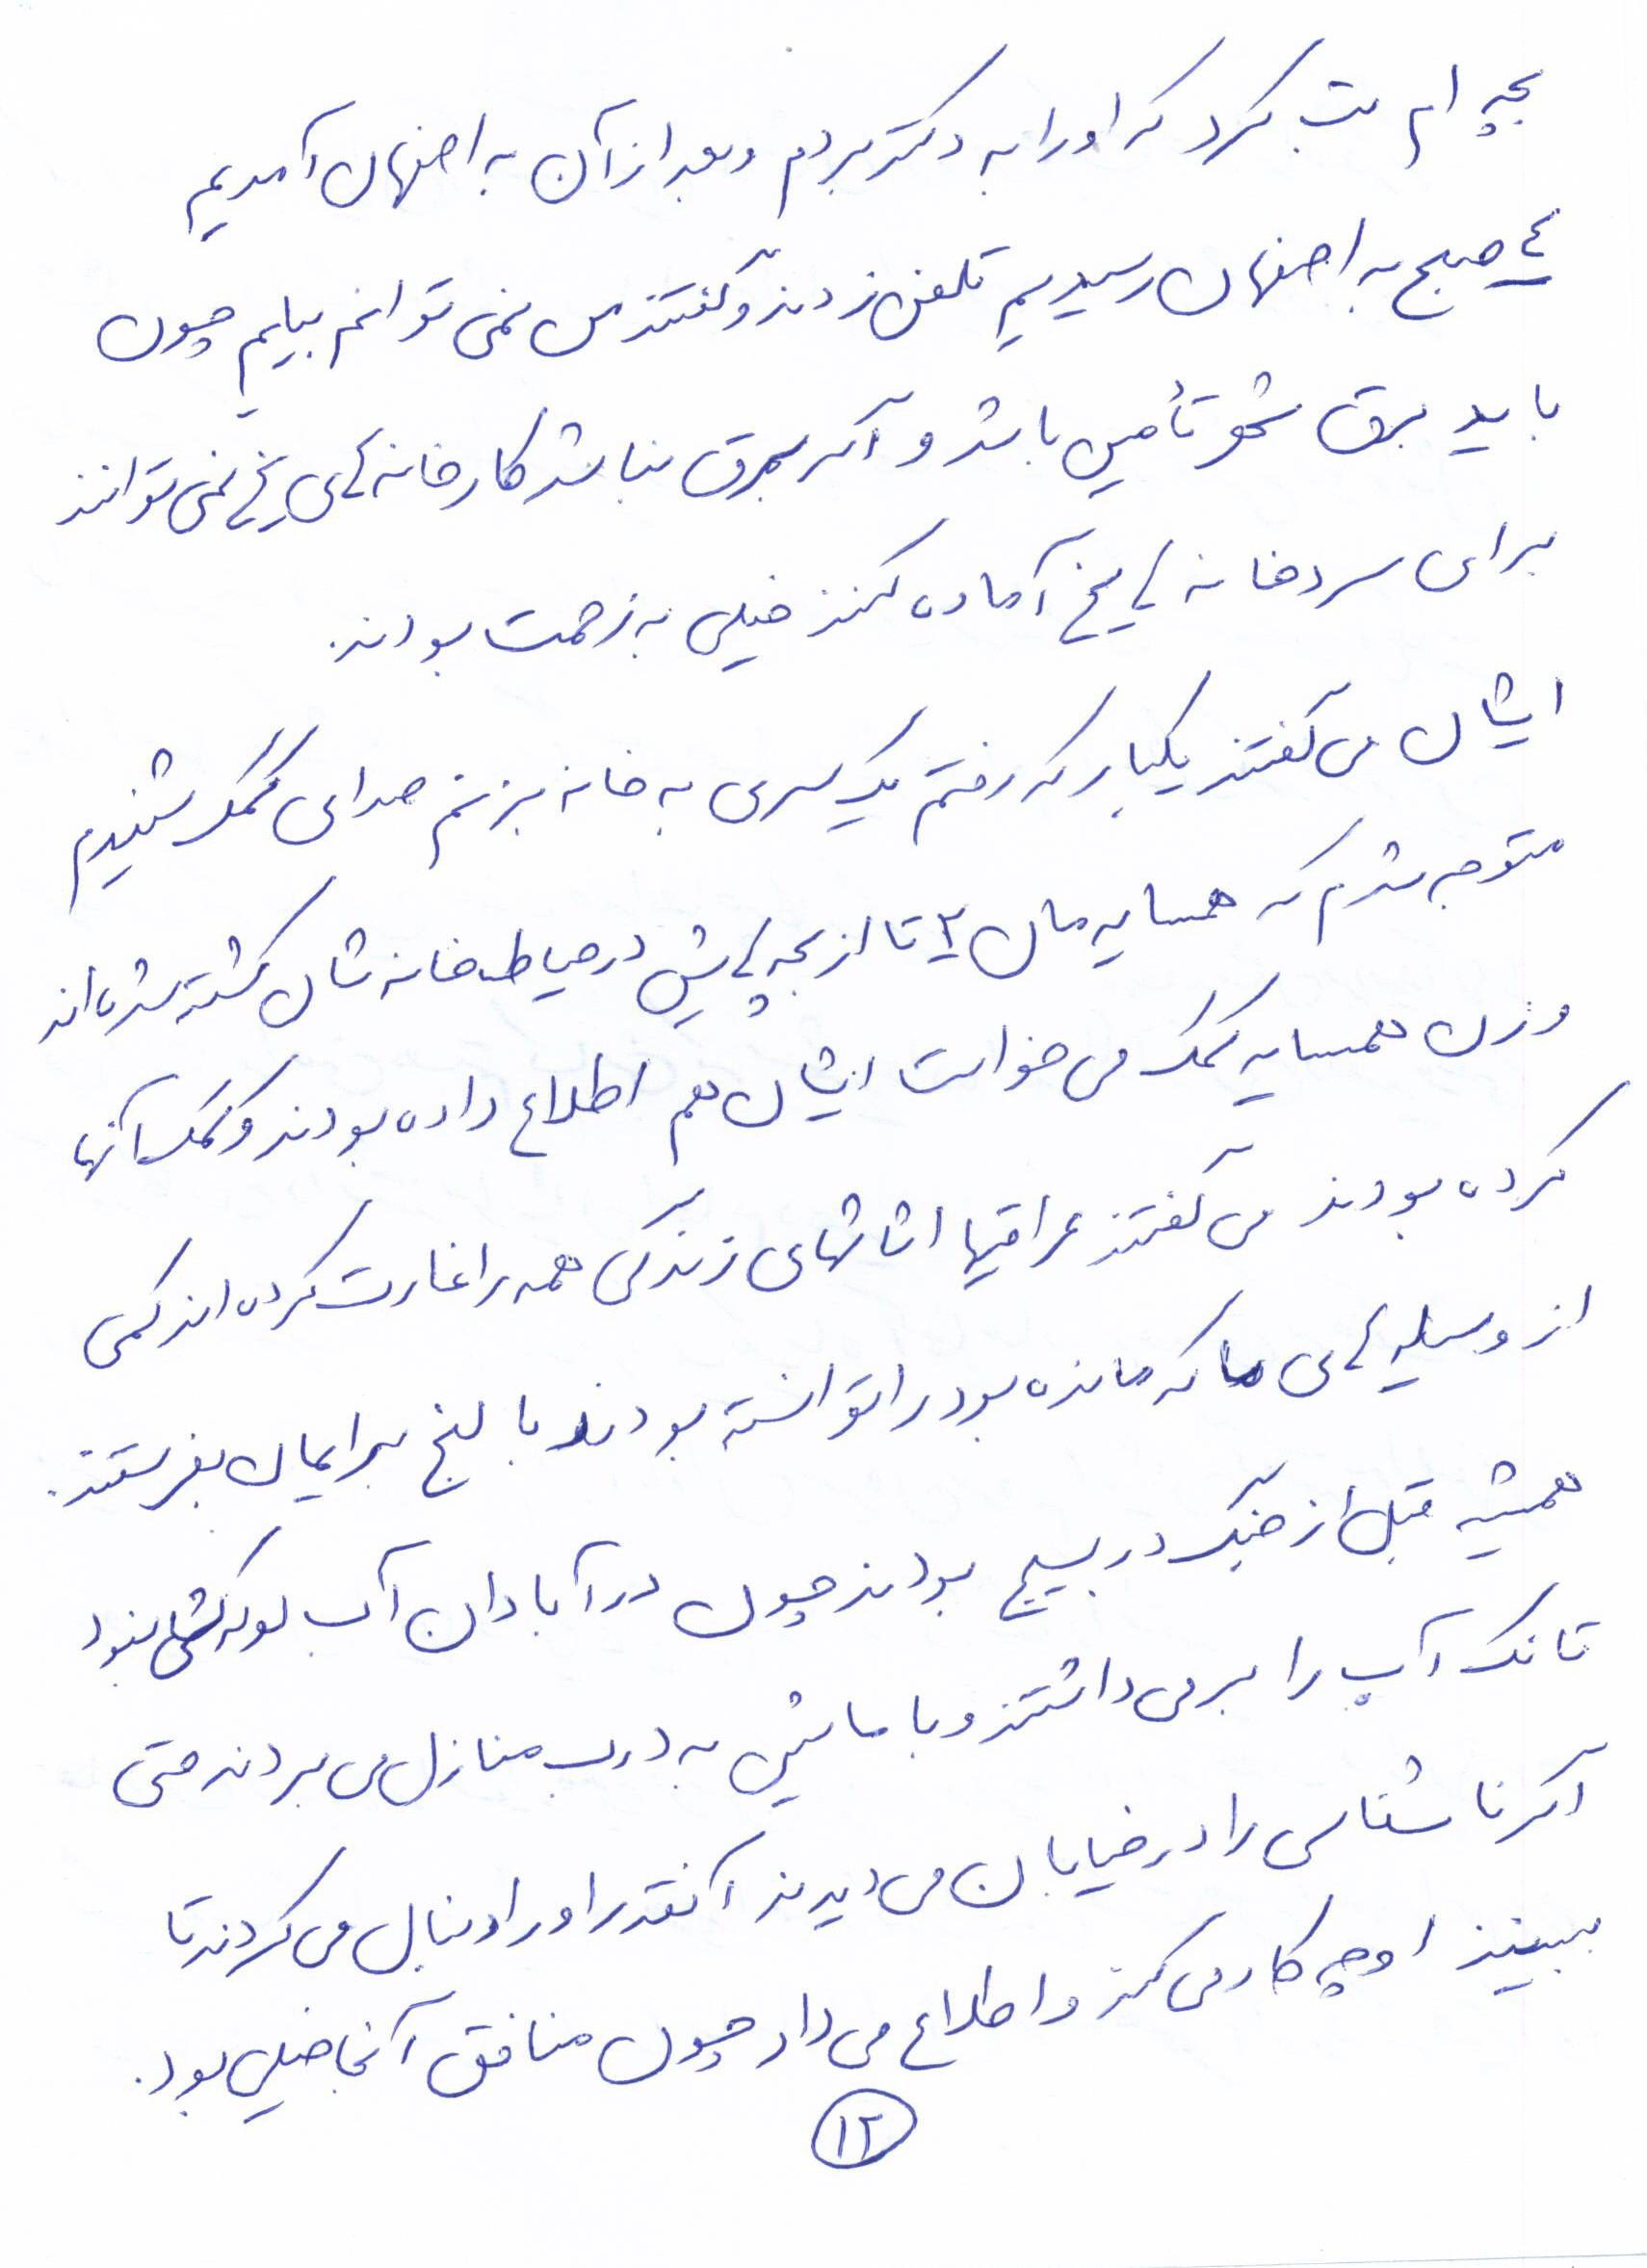 بچه ام تب کرد که او را به دکتر بردم و بعد از آن به اصفهان آمدیم
٤ صبح به اصفهان رسیدیم تلفن زدند و گفتند من نمی توانم بیایم چون
باید برق شهر تأمین باشد و اگر برق نباشد کارخانه های یخ نمی توانند
برای سردخانه ها یخ آماده کنند خیلی به زحمت بودند.
ایشان می گفتند یکبار که رفتم یک سری به خانه بزنم صدای کمک شنیدم
متوجه شدم که همسایه مان ۲ تا از بچه هایش در حیاط خانه شان کشته شده اند
و زن همسایه کمک می خواست ایشان هم اطلاع داده بودند و کمک آنها
کرده بودند می گفتند عراقیها اثاثهای زندگی همه را غارت کرده اند کمی
از وسیله های ما که مانده بود را توانسته بودند با لنج برایمان بفرستند.
همیشه قبل از جنگ در بسیج بودند چون در آبادان آب لوله کشی نبود
تانک آب را بر می داشتند و با ماشین به درب منازل می بردند حتی
اگر ناشناسی را در خیابان می دیدند آنقدر او را دنبال می کردند تا
ببینند او چه کار می کند و اطلاع می داد چون منافق آنجا خیلی بود.
۱۲